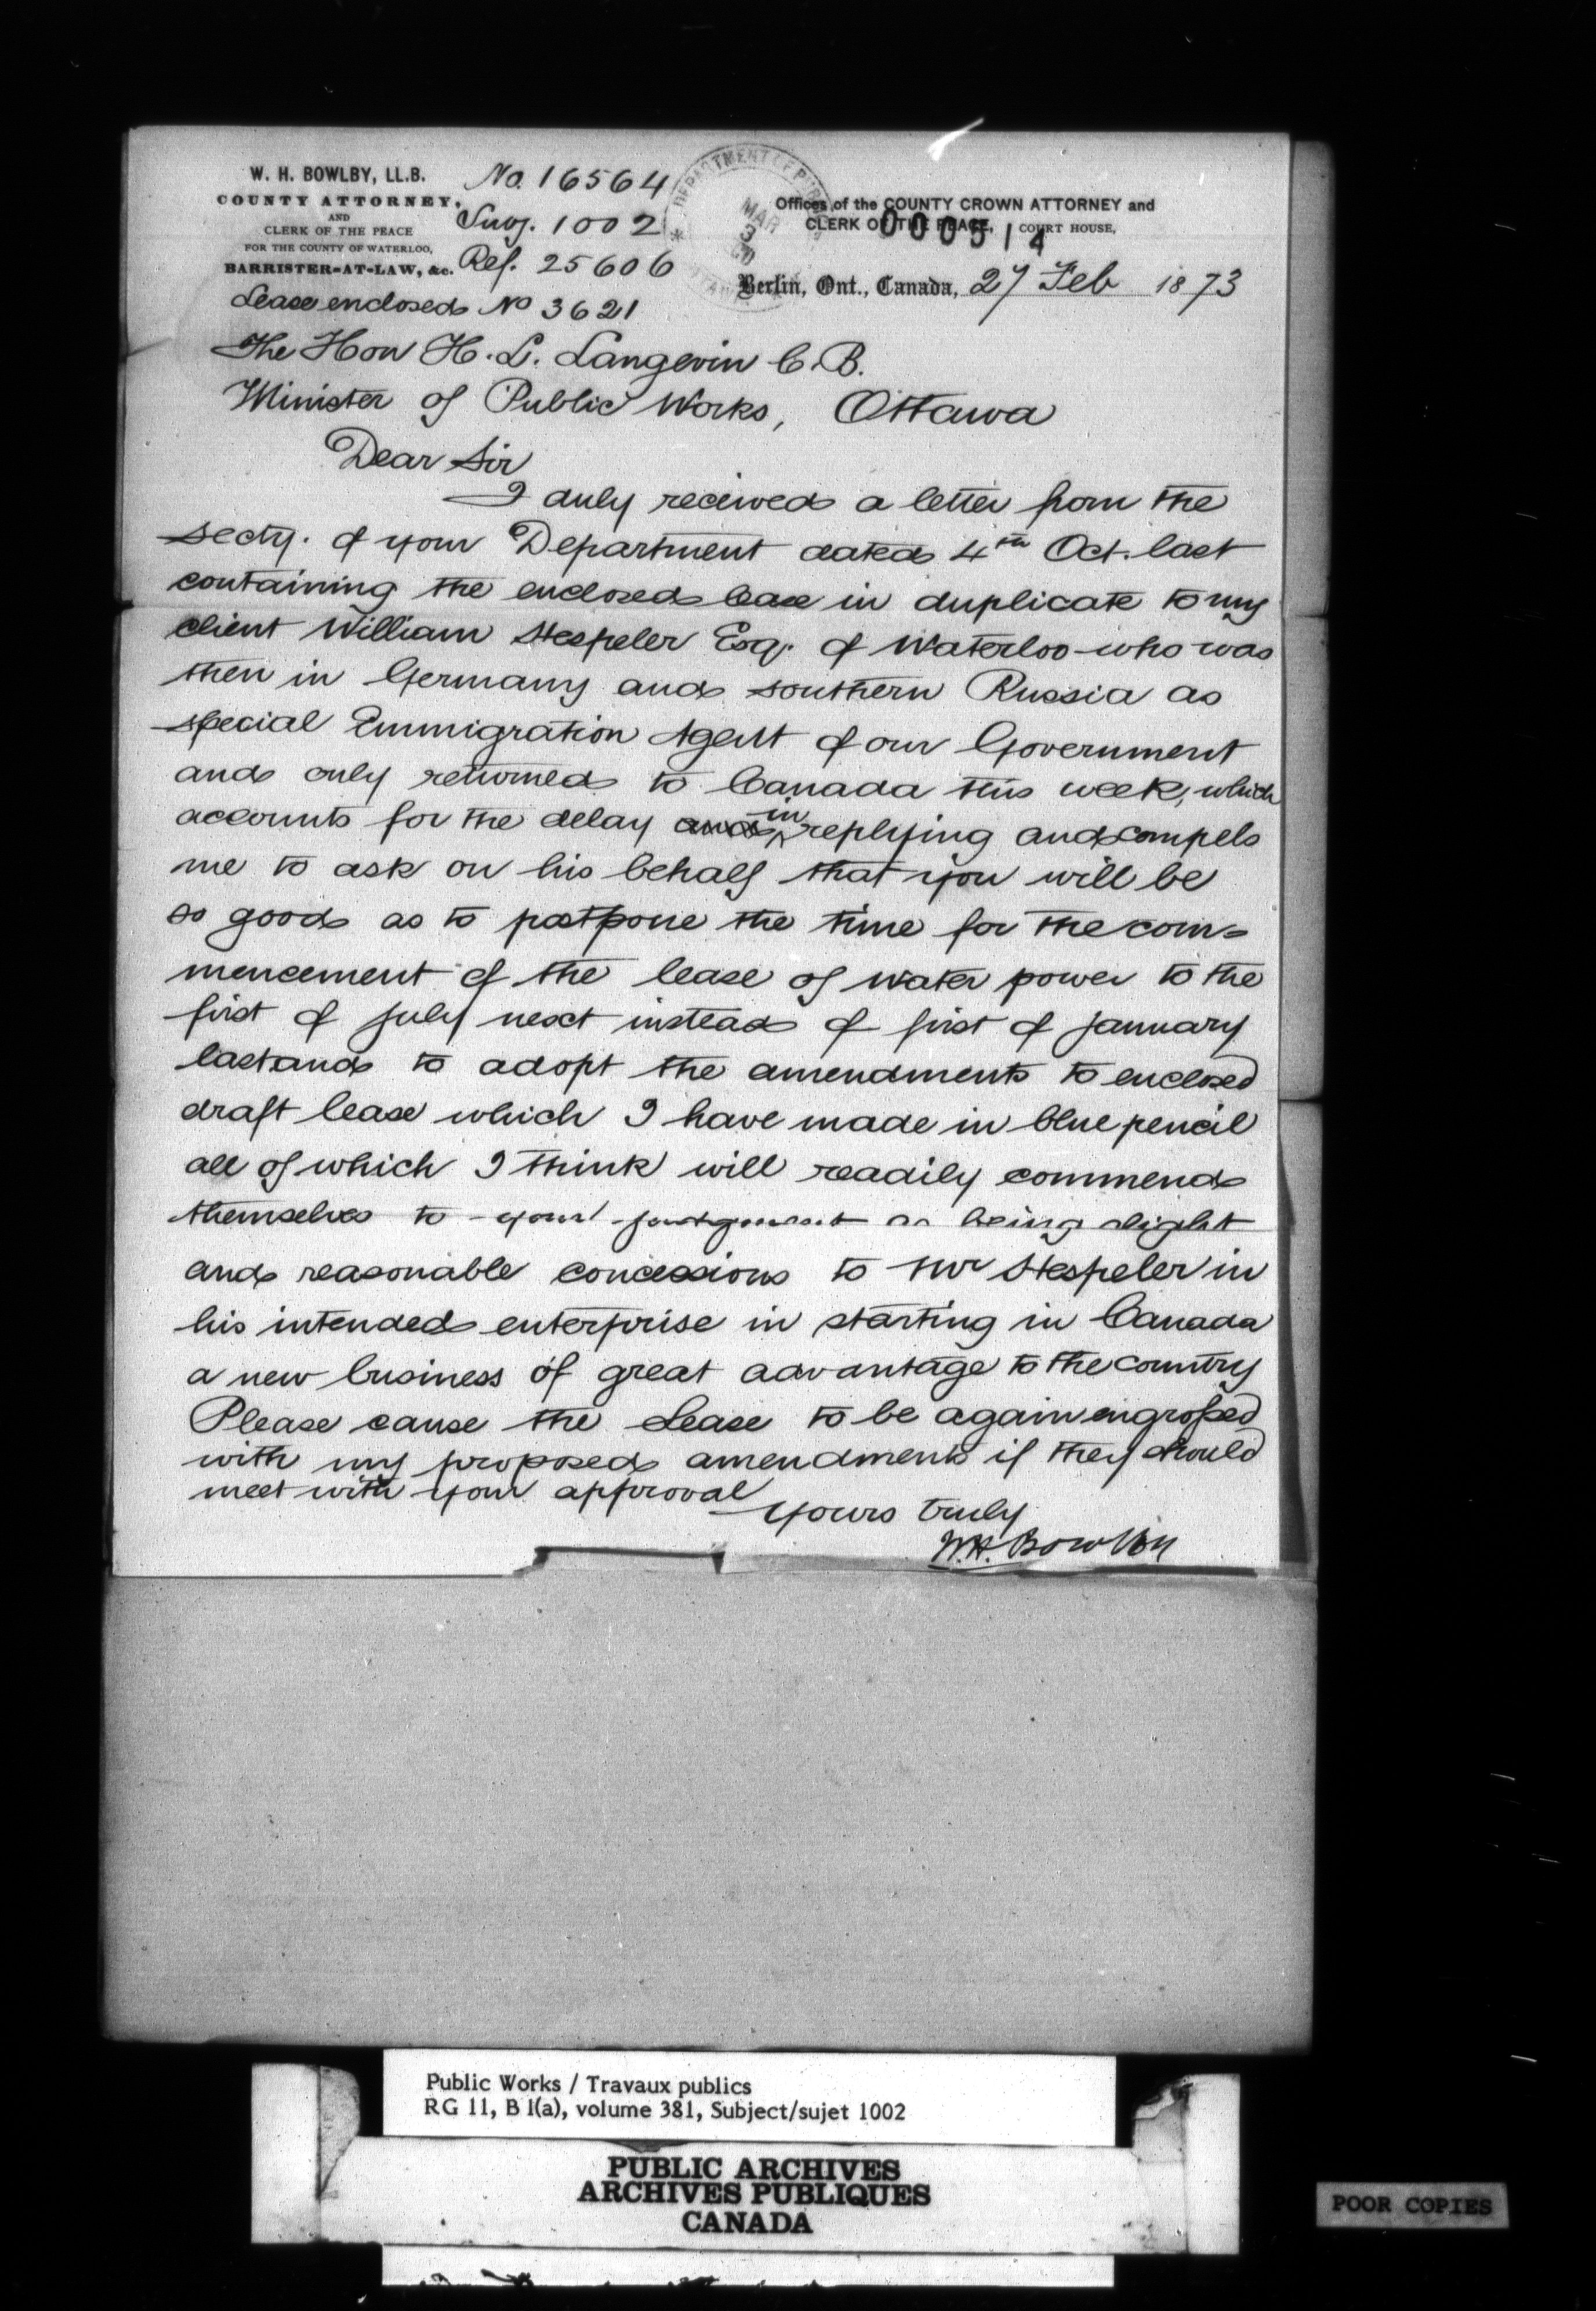 W. H. BOWLBY, LL.B.
COUNTY ATTORNEY,
AND
CLERK OF THE PEACE
FOR THE COUNTY OF WATERLOO,
BARRISTER-AT-LAW, &c.
No. 16564
Subj. 1002
Ref. 25606
Lease enclosed No 3621
DEPARTMENT OF PUBLIC
MAR
3
Offices of the COUNTY CROWN ATTORNEY and
CLERK OF THE PEACE, COURT HOUSE,
000514
Berlin, Ont., Canada, 27 Feb 1873
The Hon H. L. Langevin C.B.
Minister of Public Works, Ottawa
Dear Sir
I duly received a letter from the
secty. of your Department dated 4th Oct. last
containing the enclosed lease in duplicate to my
client William Hespeler Esq. of Waterloo who was
then in Germany and southern Russia as
special Emmigration Agent of our Government
and only returned to Canada this week, which
accounts for the delay and in replying and compels
me to ask on his behalf that you will be
so good as to postpone the time for the com=
mencement of the lease of water power to the
first of July next instead of first of January
last and to adopt the amendments to enclosed
draft lease which I have made in blue pencil
all of which I think will readily commend
themselves to your judgment as being slight
and reasonable concessions to Mr Hespeler in
his intended enterprise in starting in Canada
a new business of great advantage to the country
Please cause the Lease to be again engrossed
with my proposed amendments if they should
meet with your approval
Yours truly
W.H. Bowlby
Public Works / Travaux publics
RG 11, B 1(a), volume 381, Subject/sujet 1002
PUBLIC ARCHIVES
ARCHIVES PUBLIQUES
CANADA
POOR COPIES